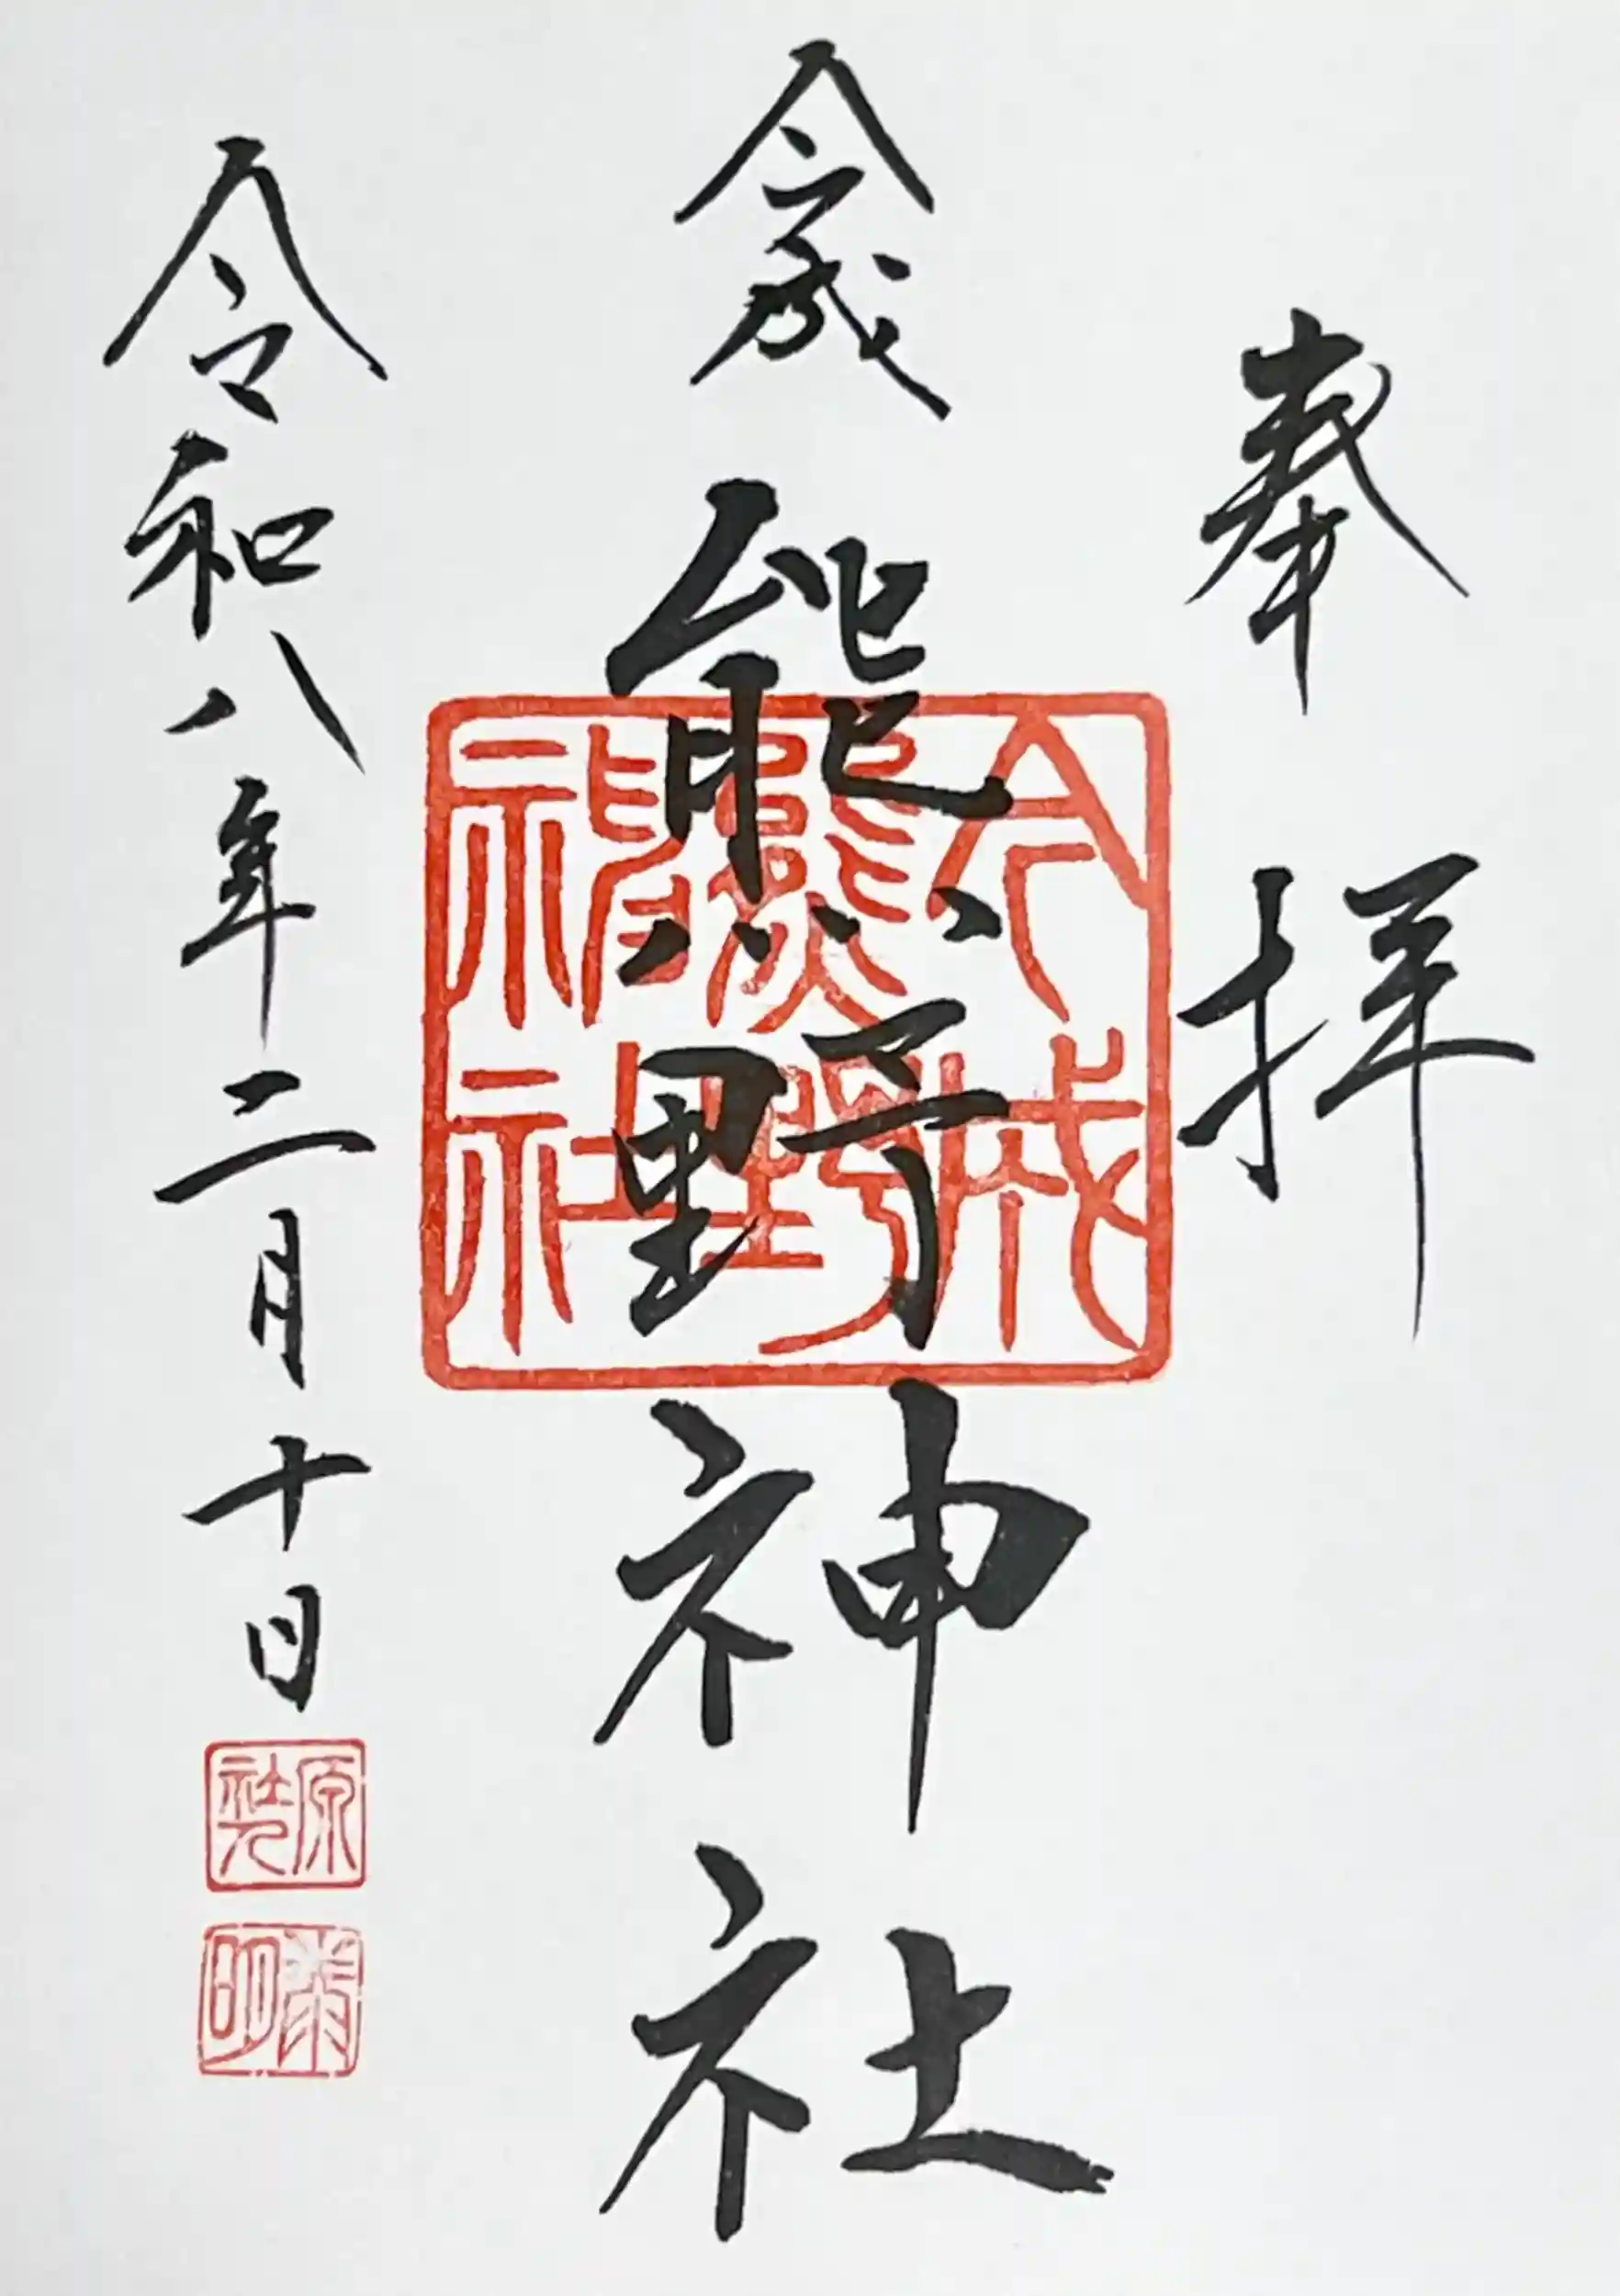 奉拝
今成
熊野神社
今成
熊野
神社
令和八年二月十日